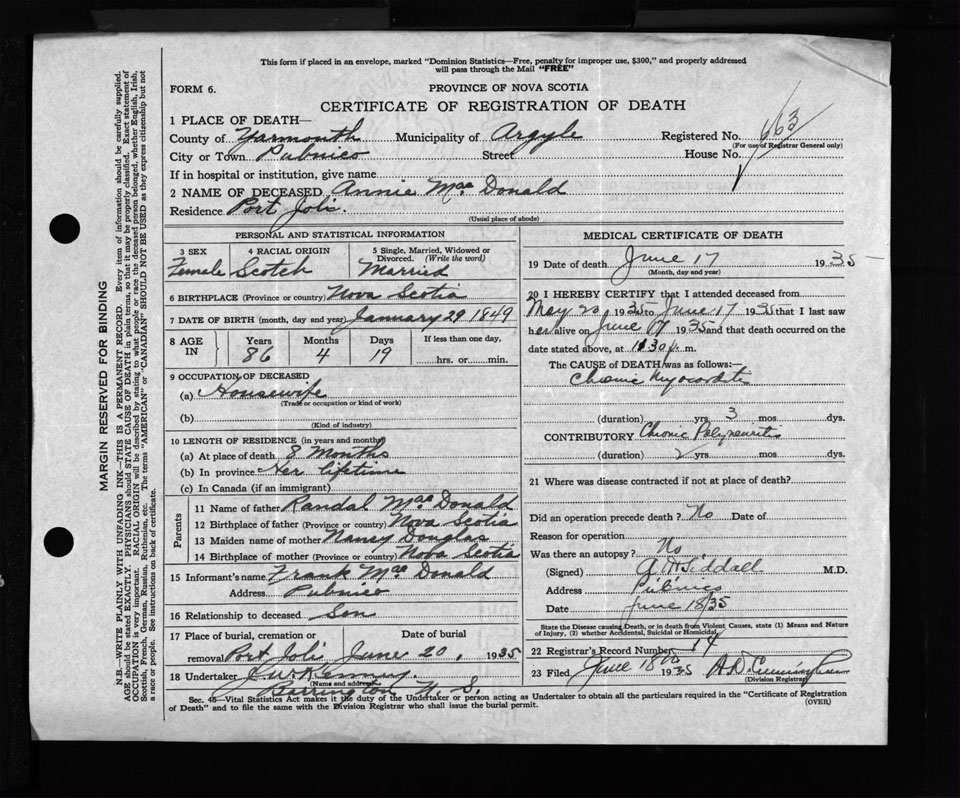 This form if placed in an envelope, marked "Dominion Statistics—Free, penalty for improper use, $300," and properly addressed
will pass through the Mail "FREE"
FORM 6.
PROVINCE OF NOVA SCOTIA
CERTIFICATE OF REGISTRATION OF DEATH
1 PLACE OF DEATH—
County of Yarmouth Municipality of Argyle Registered No. 663
(For use of Registrar General only)
City or Town Pubnico Street House No.
If in hospital or institution, give name
2 NAME OF DECEASED Annie Mac Donald
Residence Port Joli.
(Usual place of abode)
PERSONAL AND STATISTICAL INFORMATION
3 SEX Female
4 RACIAL ORIGIN Scotch
5 Single, Married, Widowed or Divorced. (Write the word) Married
6 BIRTHPLACE (Province or country) Nova Scotia
7 DATE OF BIRTH (month, day and year) January 29 1849
8 AGE IN Years 86 Months 4 Days 19 If less than one day, hrs. or min.
9 OCCUPATION OF DECEASED
(a) Housewife
(Trade or occupation or kind of work)
(b)
(Kind of industry)
10 LENGTH OF RESIDENCE (in years and months)
(a) At place of death 8 Months
(b) In province Her lifetime
(c) In Canada (if an immigrant)
Parents
11 Name of father Randal Mac Donald
12 Birthplace of father (Province or country) Nova Scotia
13 Maiden name of mother Nancy Douglas
14 Birthplace of mother (Province or country) Nova Scotia
15 Informant's name Frank Mac Donald
Address Pubnico
16 Relationship to deceased Son
17 Place of burial, cremation or removal Port Joli Date of burial June 20, 1935
18 Undertaker J. W. Kenney.
(Name and address)
Barrington N. S.
MEDICAL CERTIFICATE OF DEATH
19 Date of death June 17 1935
(Month, day and year)
20 I HEREBY CERTIFY that I attended deceased from
May 20, 1935 to June 17 1935 that I last saw
her alive on June 17 1935 and that death occurred on
date stated above, at 11.30 p. m.
The CAUSE of DEATH was as follows:—
Chronic Myocarditis
(duration) yrs. 3 mos. dys.
CONTRIBUTORY Chronic
(duration) 2 yrs. mos. dys.
21 Where was disease contracted if not at place of death?
Did an operation precede death? No Date of
Reason for operation
Was there an autopsy? No
(Signed) Siddall M.D.
Address Pubnico
Date June 18/35
State the Disease causing Death, or in death from Violent Causes, state (1) Means and Nature
of Injury, (2) whether Accidental, Suicidal or Homicidal.
22 Registrar's Record Number 14
23 Filed June 18th 1935 A. D. Cunningham
(Division Registrar)
Sec. 46—Vital Statistics Act makes it the duty of the Undertaker or person acting as Undertaker to obtain all the particulars required in the "Certificate of Registration
of Death" and to file the same with the Division Registrar who shall issue the burial permit.
(OVER)
MARGIN RESERVED FOR BINDING
N.B.—WRITE PLAINLY WITH UNFADING INK—THIS IS A PERMANENT RECORD. Every item of information should be carefully supplied.
AGE should be stated EXACTLY. PHYSICIANS should STATE CAUSE OF DEATH in plain terms, so that it may be properly classified. Exact statement of
OCCUPATION is very important. RACIAL ORIGIN will be described by stating to what people or race the deceased person belonged, whether English, Irish,
Scottish, French, German, Russian, Ruthenian, etc. The terms "AMERICAN" or "CANADIAN" SHOULD NOT BE USED as they express citizenship but not
a race or people. See instructions on back of certificate.